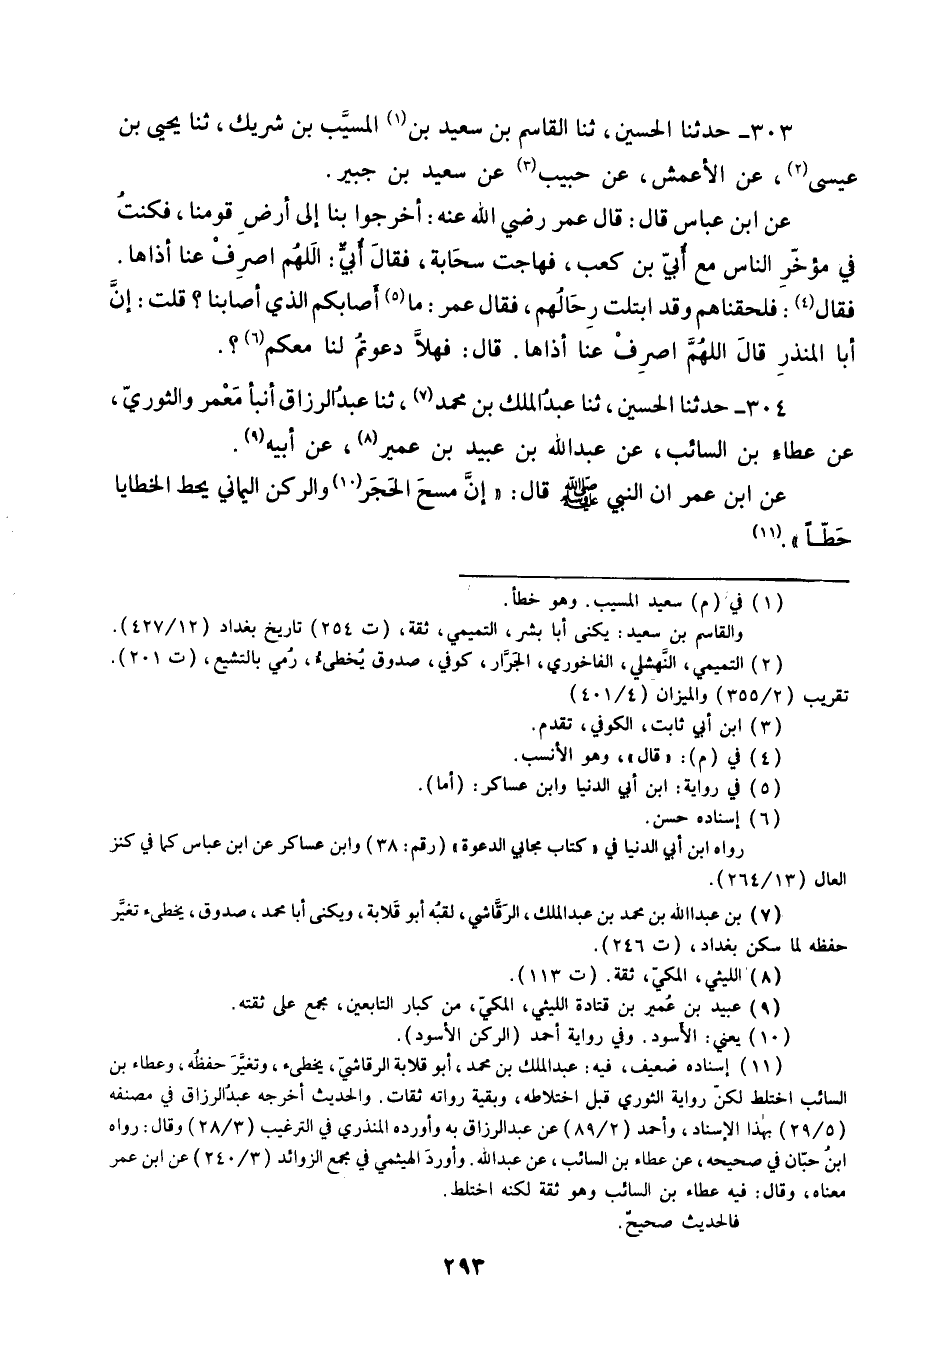 ٣٠٣ـ حدثنا الحسين، ثنا القاسم بن سعيد بن(١) المسيَّب بن شريك، ثنا يحيى بن
عيسى(٢)، عن الأعمش، عن حبيب(٣) عن سعيد بن جبير.
عن ابن عباس قال: قال عمر رضي الله عنه: أخرجوا بنا إلى أرض قومنا، فكنتُ
في مؤخّرِ الناس مع أُبيّ بن كعب، فهاجت سحَابة، فقالَ أُبيٌّ: اللهُم اصرِفْ عنا أذاها.
فقال(٤): فلحقناهم وقد ابتلت رِحَالُهم، فقال عمر: ما(٥) أصابكم الذي أصابنا؟ قلت: إنَّ
أبا المنذرِ قالَ اللهُمَّ اصرِفْ عنا أذاها. قال: فهلاَّ دعوتمُ لنا معكم(٦)؟.
٣٠٤ـ حدثنا الحسين، ثنا عبدُالملك بن محمد(٧)، ثنا عبدُالرزاق أنبأ مَعْمر والثوريّ،
عن عطاء بن السائب، عن عبدالله بن عبيد بن عمير(٨)، عن أبيه(٩).
عن ابن عمر ان النبي ﷺ قال: « إنَّ مسحَ الحَجَر(١٠) والركن اليماني يحط الخطايا
حَطّـاً ».(١١)
(١) في (م) سعيد المسيب. وهو خطأ.
والقاسم بن سعيد: يكنى أبا بشر، التميمي، ثقة، (ت ٢٥٤) تاريخ بغداد (٤٢٧/١٢).
(٢) التميمي، النَّهشلي، الفاخوري، الجَرَّار، كوفي، صدوق يُخطىءُ، رُمي بالتشيع، (ت ٢٠١).
تقريب (٣٥٥/٢) والميزان (٤٠١/٤)
(٣) ابن أبي ثابت، الكوفي، تقدم.
(٤) في (م): «قال»، وهو الأنسب.
(٥) في رواية: ابن أبي الدنيا وابن عساكر: (أما).
(٦) إسناده حسن.
رواه ابن أبي الدنيا في «كتاب مجابي الدعوة» (رقم: ٣٨) وابن عساكر عن ابن عباس كما في كنز
العمال (٢٦٤/١٣).
(٧) بن عبداالله بن محمد بن عبدالملك، الرَقَّاشي، لقبُه أبو قلابة، ويكنى أبا محمد، صدوق، يخطىء تغيَّر
حفظه لما سكن بغداد، (ت ٢٤٦).
(٨) الليثي، المكيّ، ثقة. (ت ١١٣).
(٩) عبيد بن عُمير بن قتادة الليثي، المكيّ، من كبار التابعين، مجمع على ثقته.
(١٠) يعني: الأسود. وفي رواية أحمد (الركن الأسود).
(١١) إسناده ضعيف، فيه: عبدالملك بن محمد، أبو قلابة الرقاشيّ، يخطىء، وتغيَّرَ حفظُه، وعطاء بن
السائب اختلط لكنّ رواية الثوري قبل اختلاطه، وبقية رواته ثقات. والحديث أخرجه عبدُالرزاق في مصنفه
(٢٩/٥) بهٰذا الإسناد، وأحمد (٨٩/٢) عن عبدالرزاق به وأورده المنذري في الترغيب (٢٨/٣) وقال: رواه
ابنُ حبّان في صحيحه، عن عطاء بن السائب، عن عبدالله. وأوردَ الهيثمي في مجمع الزوائد (٢٤٠/٣) عن ابن عمر
معناه، وقال: فيه عطاء بن السائب وهو ثقة لكنه اختلط.
فالحديث صحيحٌ.
٢٩٣